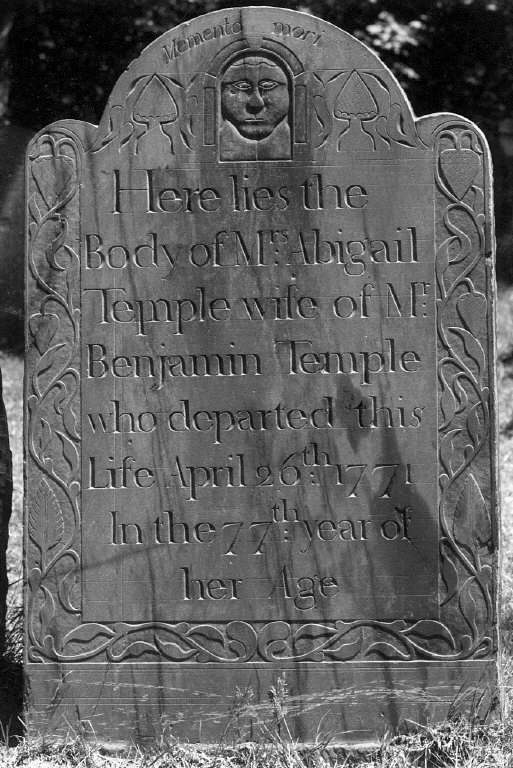 Memento mori
Here lies the
Body of Mrs. Abigail
Temple wife of Mr.
Benjamin Temple
who departed this
Life April 26th. 1771
In the 77th. year of
her Age